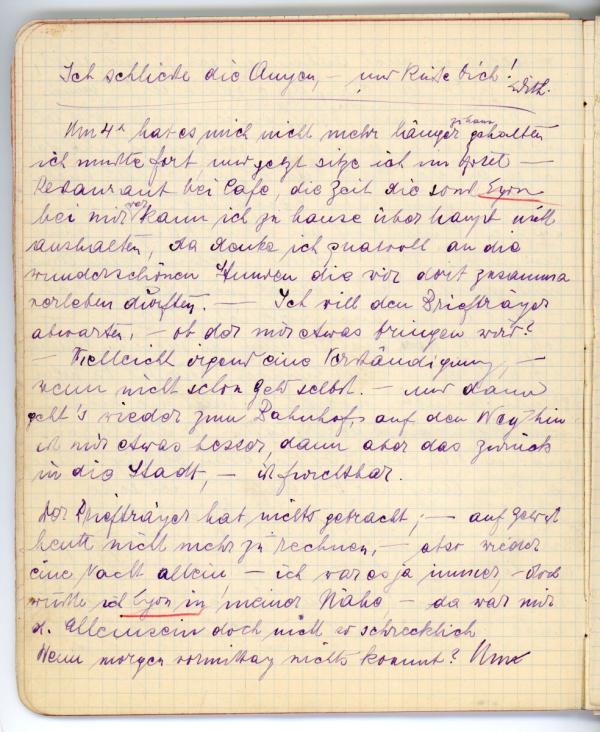 Ich schließe die Augen, – und küsse Dich!
Edith.
Um 4h hat es mich nicht mehr länger zuhaus gehalten
ich mußte fort, und jetzt sitze ich im
Restaurant bei Cafe, die Zeit die sonst Egon
bei mir war kann ich zu hause überhaupt nicht
aushalten, da denke ich qualvoll an die
wunderschönen Stunden die wir dort zusammen
verleben dürften. — Ich will den Briefträger
abwarten, – ob der mir etwas bringen wird?
– Vielleicht irgend eine Verständigung, –
wenn nicht schon Geld selbst. – und dann
geht's wieder zum Bahnhof, auf den Weg hin
ist mir etwas besser, dann aber das zurück
in die Stadt, – ist furchtbar.
Der Briefträger hat nichts gebracht, – auf Geld ist
heute nicht mehr zu rechnen, – also wieder
eine Nacht allein – ich war es ja immer – doch
wußte ich Egon in meiner Nähe – da war mir
d. Alleinsein doch nicht so schrecklich
Wenn morgen vormittag nichts kommt? Um